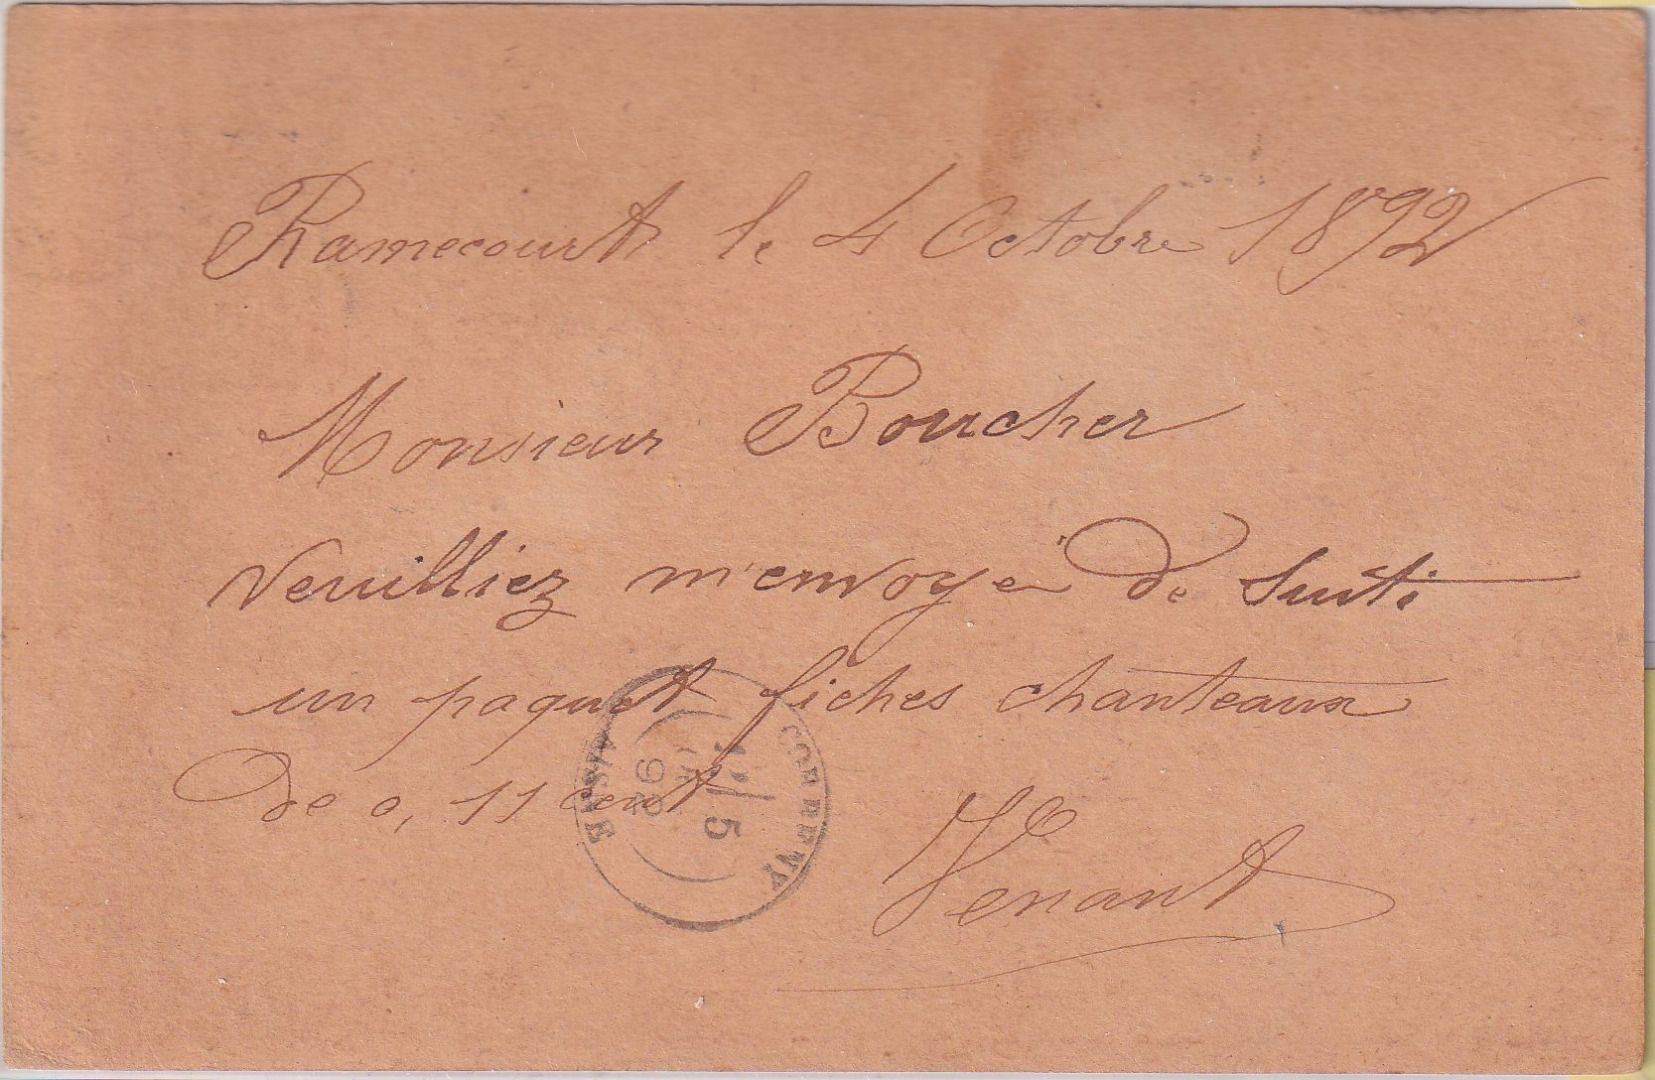 Ramecourt le 4 Octobre 1892
Monsieur Boucher
Veuilliez m'envoyé de Suite
un paquet fiches chanteaux
de 0,11 cent
Venant
5
OCT
92